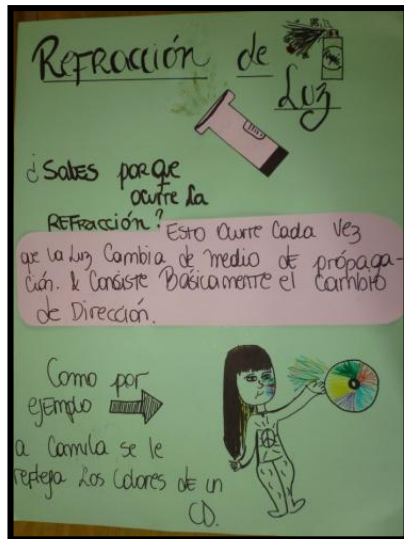 REFRacción de
Luz
¿Sabes porque
ocurre la
REFRacción?
Esto Ocurre Cada Vez
que la Luz Cambia de medio de própaga-
ción. & Consiste Básicamente el cambio
de Dirección.
Como por
ejemplo
a Camila se le
refleja Los Colores de un
CD.